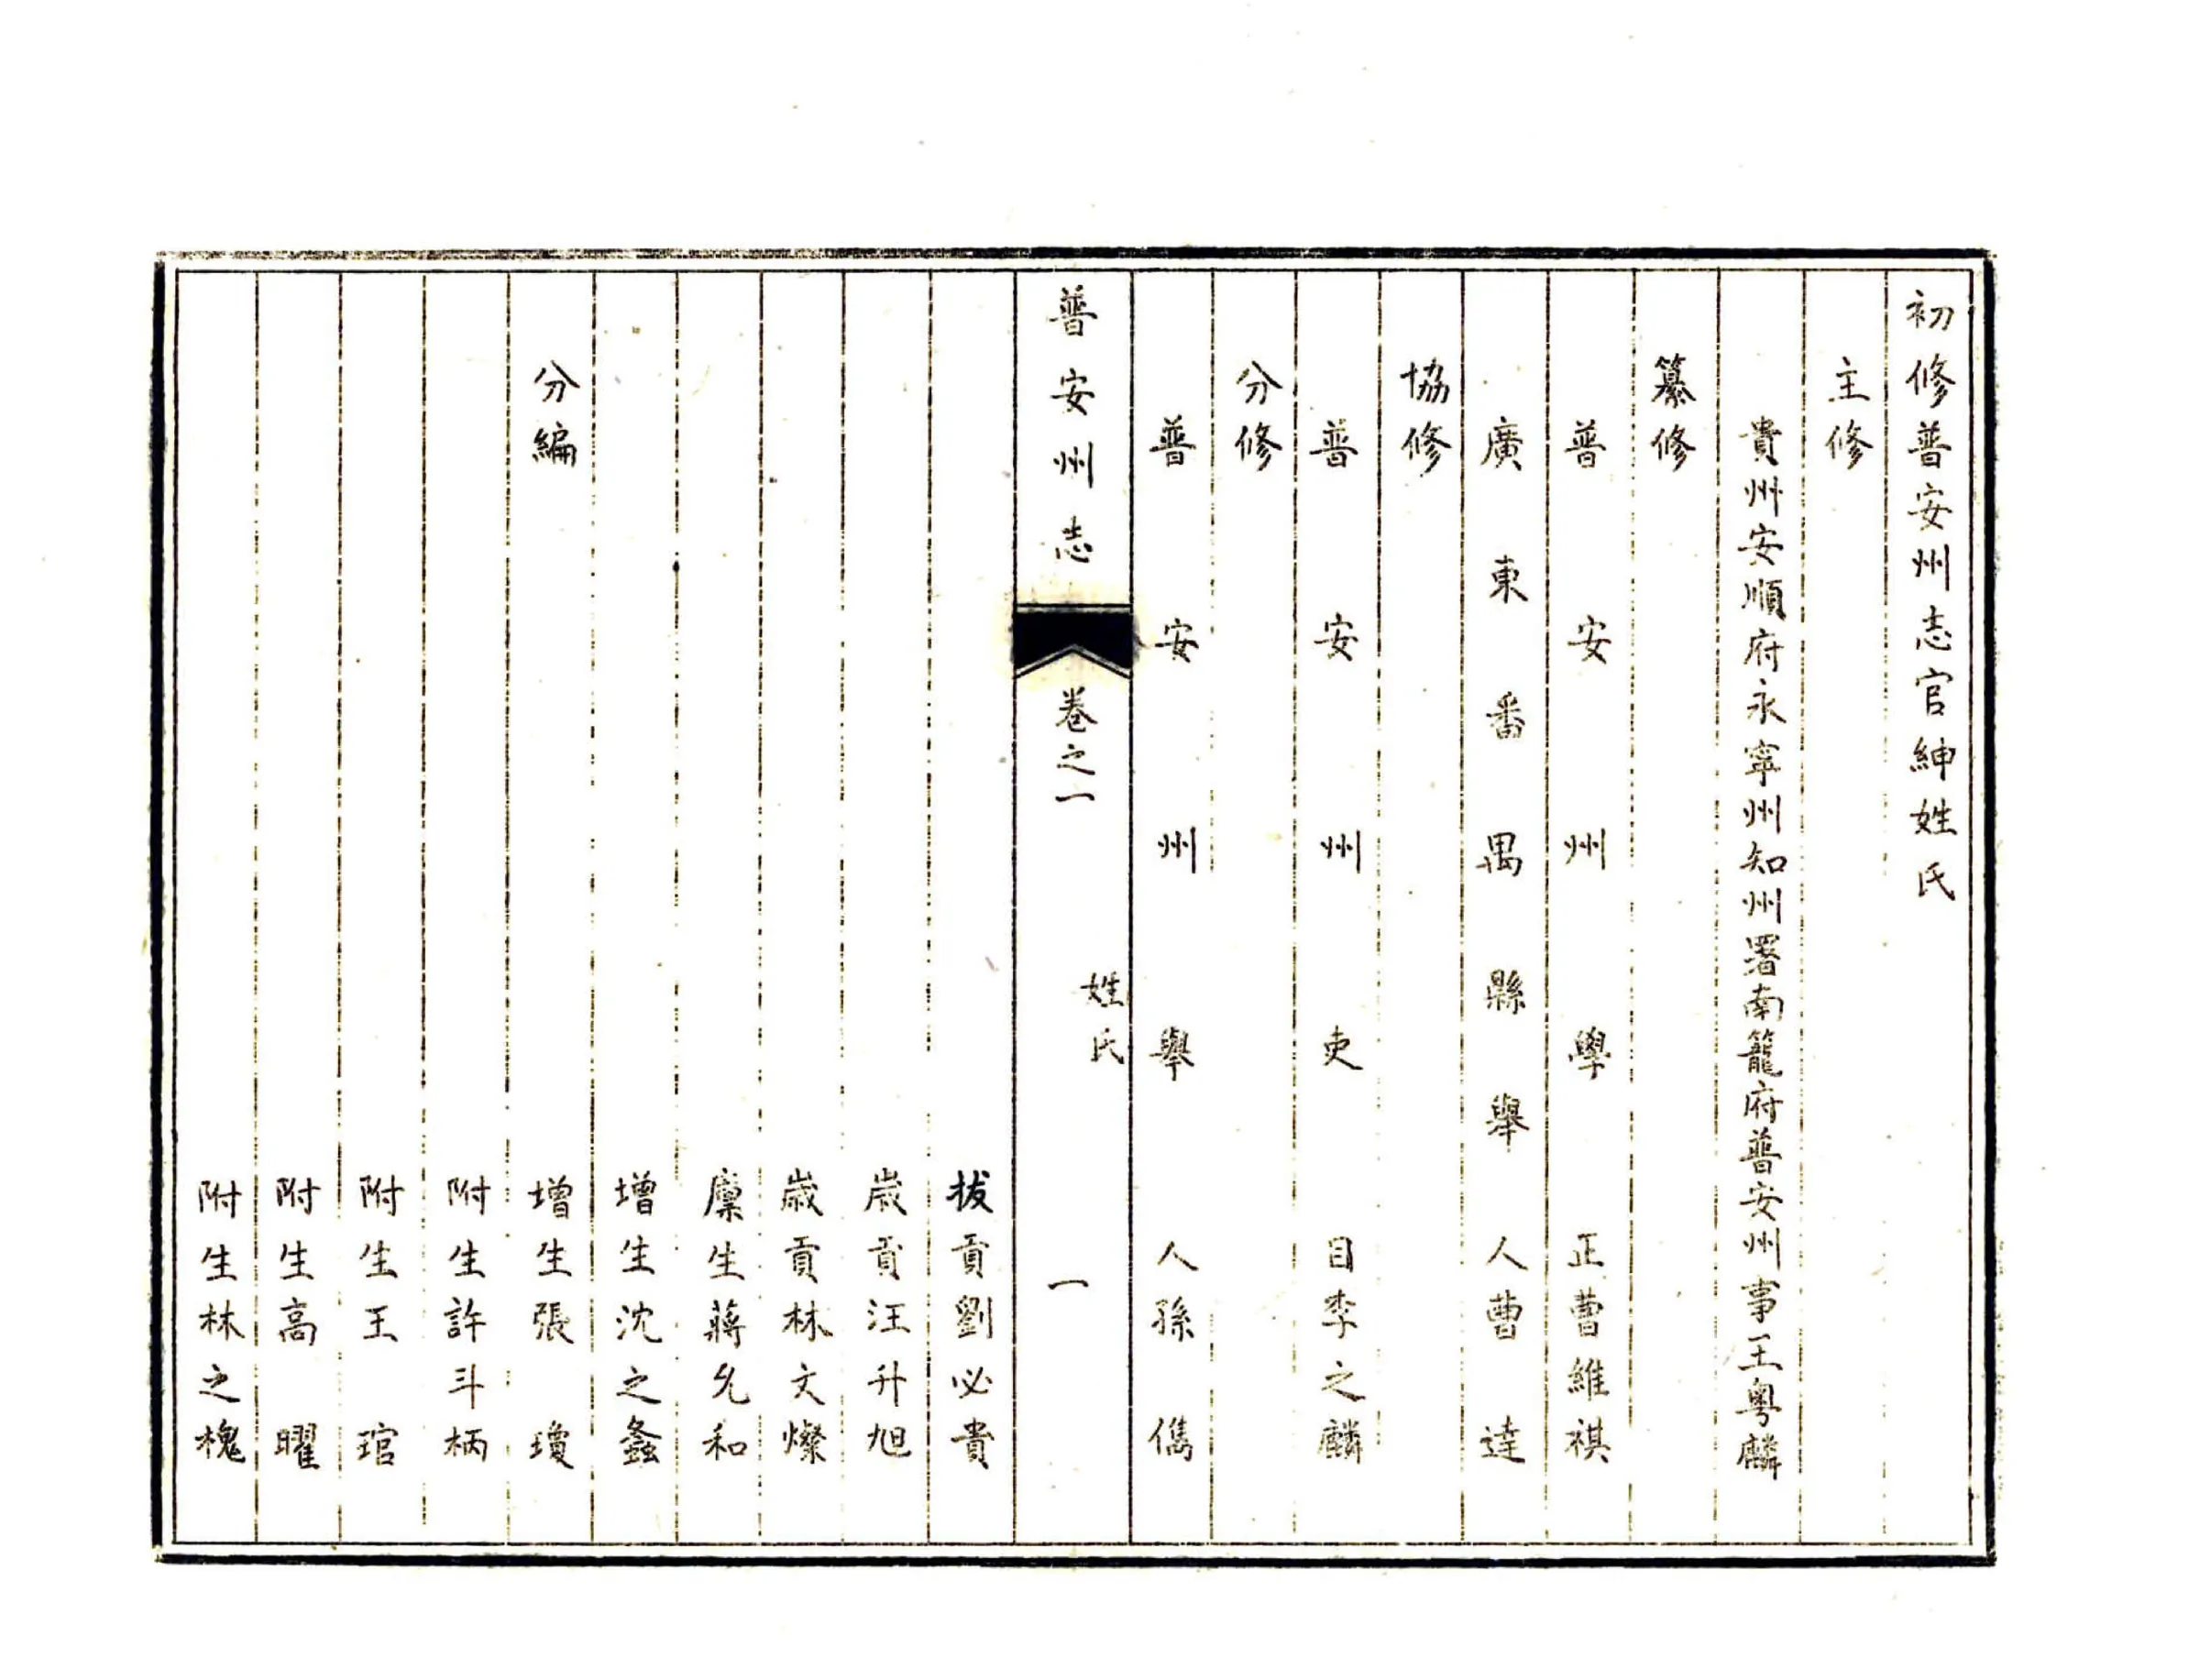 初修普安州志官紳姓氏
主修
貴州安順府永寧州知州署南籠府普安州事王粵麟
纂修
普安州學正曹維祺
廣東番禺縣舉人曹達
協修
普安州吏目李之麟
分修
普安州舉人孫儁
普安州志 卷之一 姓氏 一
拔貢劉必貴
歲貢汪升旭
歲貢林文燦
廩生蔣允和
增生沈之螽
分編 增生張瓊
附生許斗柄
附生王琯
附生高曜
附生林之槐